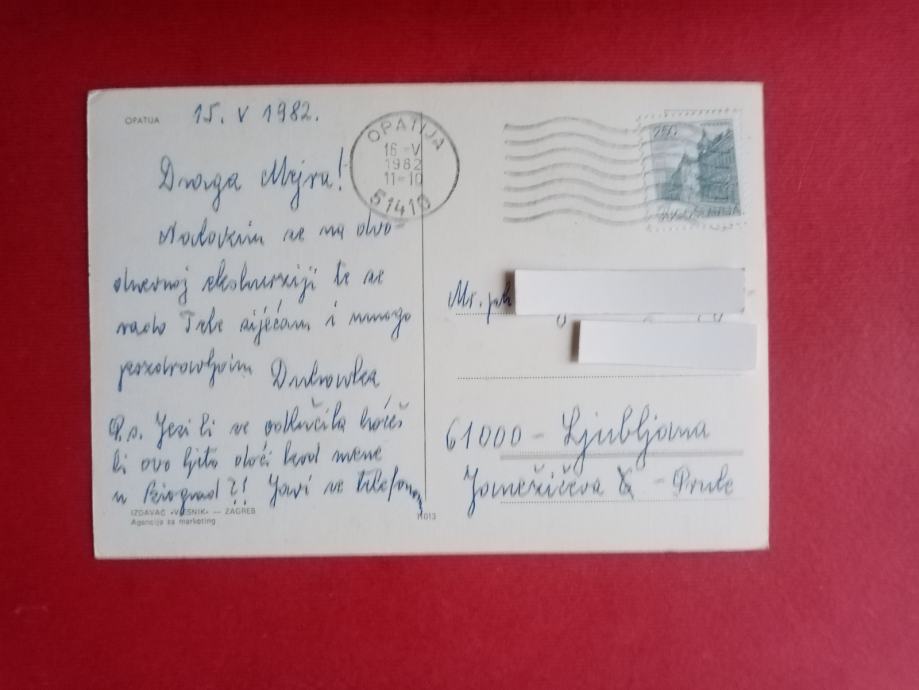 OPATIJA
15. V 1982.
Draga Mejra!
Nalazim se na dvo
dnevnoj ekskurziji te se
rado Tebe sijećam i mnogo
pozdravljam Dubravka
P.s. Jesi li se odlučila hoćeš
li ovo ljeto doći kod mene
u Beograd?! Javi se telefonom
IZDAVAČ «VJESNIK» — ZAGREB
Agencija za marketing
11013
OPATIJA
16-V
1982
11-10
51410
250
JUGOSLAVIJA
Mr. ph
61000 - Ljubljana
Janežičeva - Prule